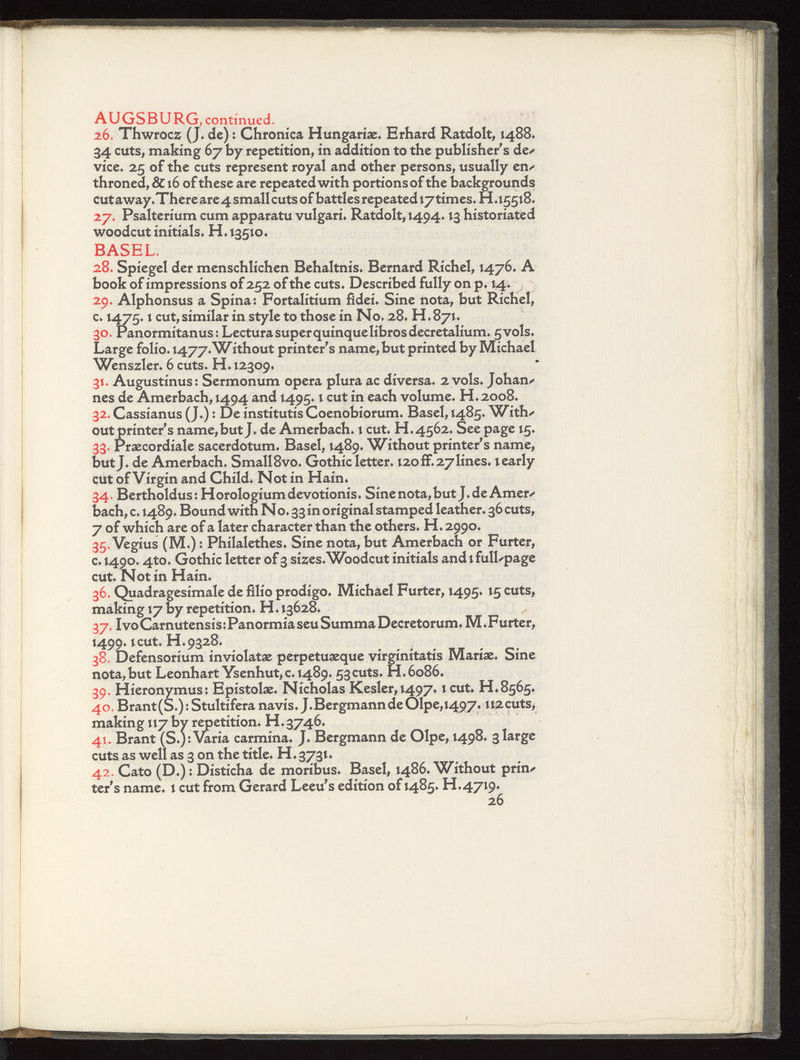 AUGSBURG, continued.
26. Thwrocz (J. de): Chronica Hungariæ. Erhard Ratdolt, 1488.
34 cuts, making 67 by repetition, in addition to the publisher's de-
vice. 25 of the cuts represent royal and other persons, usually en-
throned, & 16 of these are repeated with portions of the backgrounds
cut away. There are 4 small cuts of battles repeated 17 times. H. 15518.
27. Psalterium cum apparatu vulgari. Ratdolt, 1494. 13 historiated
woodcut initials. H. 13510.
BASEL.
28. Spiegel der menschlichen Behaltnis. Bernard Richel, 1476. A
book of impressions of 252 of the cuts. Described fully on p. 14.
29. Alphonsus a Spina: Fortalitium fidei. Sine nota, but Richel,
c. 1475. 1 cut, similar in style to those in No. 28. H. 871.
30. Panormitanus: Lectura super quinque libros decretalium. 5 vols.
Large folio. 1477. Without printer's name, but printed by Michael
Wenszler. 6 cuts. H. 12309.
31. Augustinus: Sermonum opera plura ac diversa. 2 vols. Johan-
nes de Amerbach, 1494 and 1495. 1 cut in each volume. H. 2008.
32. Cassianus (J.): De institutis Coenobiorum. Basel, 1485. With-
out printer's name, but J. de Amerbach. 1 cut. H. 4562. See page 15.
33. Præcordiale sacerdotum. Basel, 1489. Without printer's name,
but J. de Amerbach. Small 8vo. Gothic letter. 120 ff. 27 lines. 1 early
cut of Virgin and Child. Not in Hain.
34. Bertholdus: Horologium devotionis. Sine nota, but J. de Amer-
bach, c. 1489. Bound with No. 33 in original stamped leather. 36 cuts,
7 of which are of a later character than the others. H. 2990.
35. Vegius (M.): Philalethes. Sine nota, but Amerbach or Furter,
c. 1490. 4to. Gothic letter of 3 sizes. Woodcut initials and 1 full-page
cut. Not in Hain.
36. Quadragesimale de filio prodigo. Michael Furter, 1495. 15 cuts,
making 17 by repetition. H. 13628.
37. Ivo Carnutensis: Panormia seu Summa Decretorum. M. Furter,
1499. 1 cut. H. 9328.
38. Defensorium inviolatæ perpetuæque virginitatis Mariæ. Sine
nota, but Leonhart Ysenhut, c. 1489. 53 cuts. H. 6086.
39. Hieronymus: Epistolæ. Nicholas Kesler, 1497. 1 cut. H. 8565.
40. Brant (S.): Stultifera navis. J. Bergmann de Olpe, 1497. 112 cuts,
making 117 by repetition. H. 3746.
41. Brant (S.): Varia carmina. J. Bergmann de Olpe, 1498. 3 large
cuts as well as 3 on the title. H. 3731.
42. Cato (D.): Disticha de moribus. Basel, 1486. Without prin-
ter's name. 1 cut from Gerard Leeu's edition of 1485. H. 4719.
26